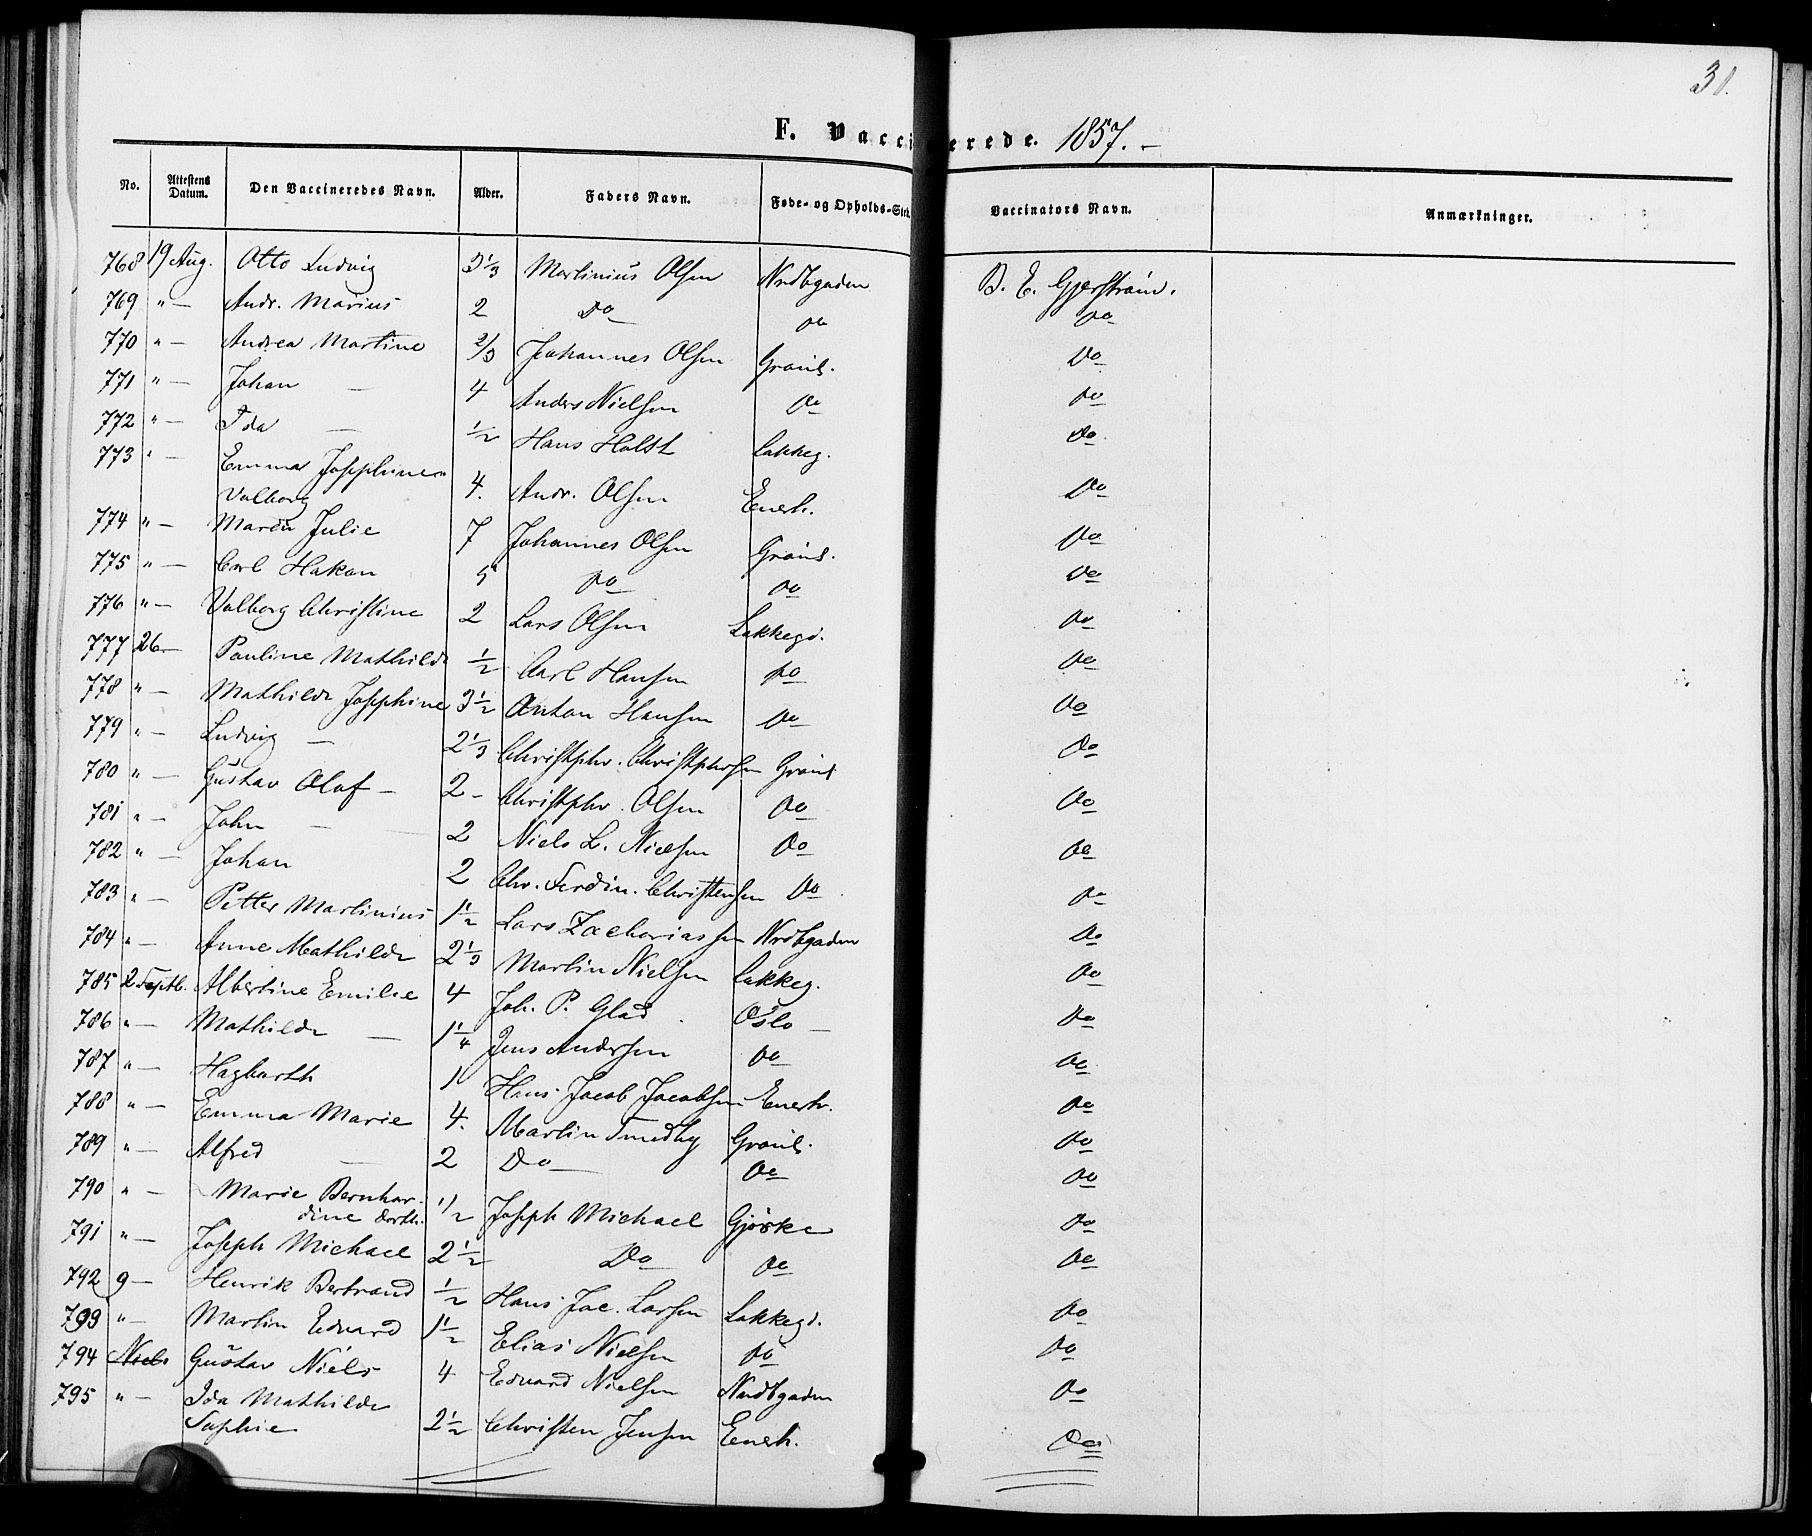 31.
F. Vaccinerede. 1857. –
No. Attestens Datum. Den Vaccineredes Navn. Alder. Faders Navn. Føde- og Opholds-Sted. Vaccinators Navn. Anmærkninger.
768 19 Aug. Otto Ludvig 3⅓ Martinius Olsen Nrdbgaden
769 " — Andr. Marius 2 Do Do Do
770 " — Andrea Martine 2/3 Johannes Olsen Grønl. Do
771 " — Johan — 4 Anders Nielsen Do Do
772 " — Ida — ½ Hans Holst Lakkeg. Do
773 " — Emma Josephine
Valborg 4. Andr. Olsen Enerh. Do
774 " — Maren Julie 7 Johannes Olsen Grønl. Do
775 " — Carl Hakon 5 Do Do Do
776 " — Valborg Christine 2 Lars Olsen Lakkegd. Do
777 26 — Pauline Mathilde ½ Carl Hansen Do Do
778 " — Mathilde Josephine 3½ Anton Hansen Do Do
779 " — Ludvig — 2⅓ Christphr. Christphersen Grønl Do
780 " — Gustav Olaf — 2 – Christphr. Olsen Do Do
781 " — John — 2 Niels L. Nielsen Do Do
782 " — Johan 2 Chr. Ferdin. Christensen Do Do
783 " — Petter Martinius 1½ Lars Zachariassen Nrdbgaden Do
784 " — Anne Mathilde 2⅓ Martin Nielsen Lakkeg. Do
785 2 Septb. Albertine Emilie 4 Joh. P. Glad Oslo — Do
786 " — Mathilde — 1¼ Jens Andersen Do Do
787 " — Hagbarth 1 Hans Jacob Jacobsen Enerh. Do
788 " — Emma Marie 4. Martin Smedby Grønl. Do
789 " — Alfred — 2 Do Do Do
790 " — Marie Bernhar-
dine Dorth. 1/2 Joseph Michael Gjøske Do
791 " — Joseph Michael 2½ Do Do Do
792 9 — Henrik Bertrand ½ Hans Jac. Larsen Lakkegd. Do
793 " — Martin Edvard 1½ Elias Nielsen Do Do
794 Niels Gustav Niels 4 Edvard Nielsen Nordbgaden Do
795 " — Ida Mathilde
Sophie 2½ Christen Jensen Enerh. Do